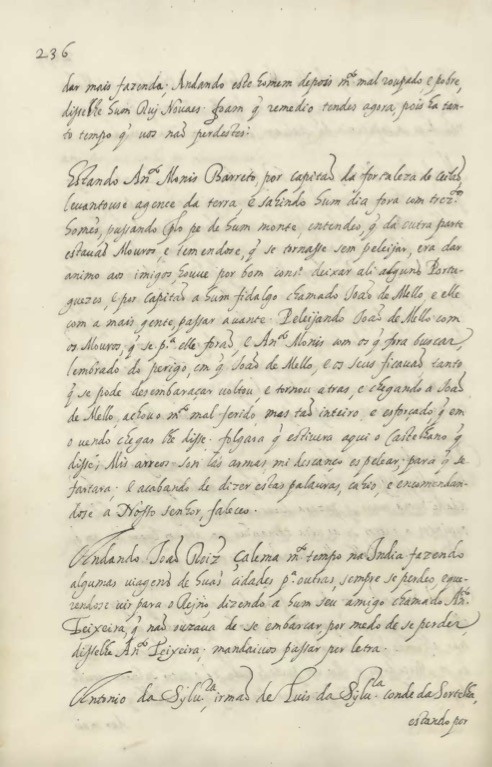 236
dar mais fazenda. Andando este homem depois m.to mal roupado e pobre,
disselhe hum Ruj Novaes. foam q̃ remedio tendes agora, pois ha tan-
to tempo q̃ vos naõ perdestes.
Estando An.to Monis Barreto, por capitaõ da fortaleza de
levantouse agente da terra, e sahindo hum dia fora com trez.tos
homẽs, passando plo pe de hum monte, entendeo, q̃ da outra parte
estavaõ Mouros, e temendose, q̃ se tornasse sem peleijar, era dar
animo aos imigos, houve por bom cons.o deixar ali alguns Portu-
guezes, e por capitaõ a hum fidalgo chamado Joaõ de Mello, e elle
com a mais gente, passar avante. Peleijando Joaõ de Mello com
os Mouros, q̃ se p.a elle foraõ, e An.to Monis com os q̃ fora buscar,
lembrado do perigo, em q̃ Joaõ de Mello, e os seus ficavaõ tanto
q̃ se pode desembaraçar voltou, e tornou atras, e chegando a Joaõ
de Mello, achou o m.to mal ferido mas taõ inteiro, e esforçado q̃ em
o vendo chegar lhe disse. folgara q̃ estivera aqui o Castelhano q̃
disse, Mis arreos son las armas, mi descanço es pelear, para q̃ se
fartara. e acabando de dizer estas palavras, cahio, e encomendan-
dose a Nosso Senhor, faleceo.
Andando Joaõ Roiz Calema m.to tempo na India fazendo
algumas viagens de huas cidades p.a outras, sempre se perdeo, e que-
rendose vir para o Rejno dizendo a hum seu amigo chamado An.to
Teixeira, q̃ naõ ouzava de se embarcar, por medo de se perder,
disselhe An.to Teixeira. mandaivos passar per letra.
Antonio da Sylv.ra irmaõ de Luis da Sylv.ra conde da Sortelha,
estando por